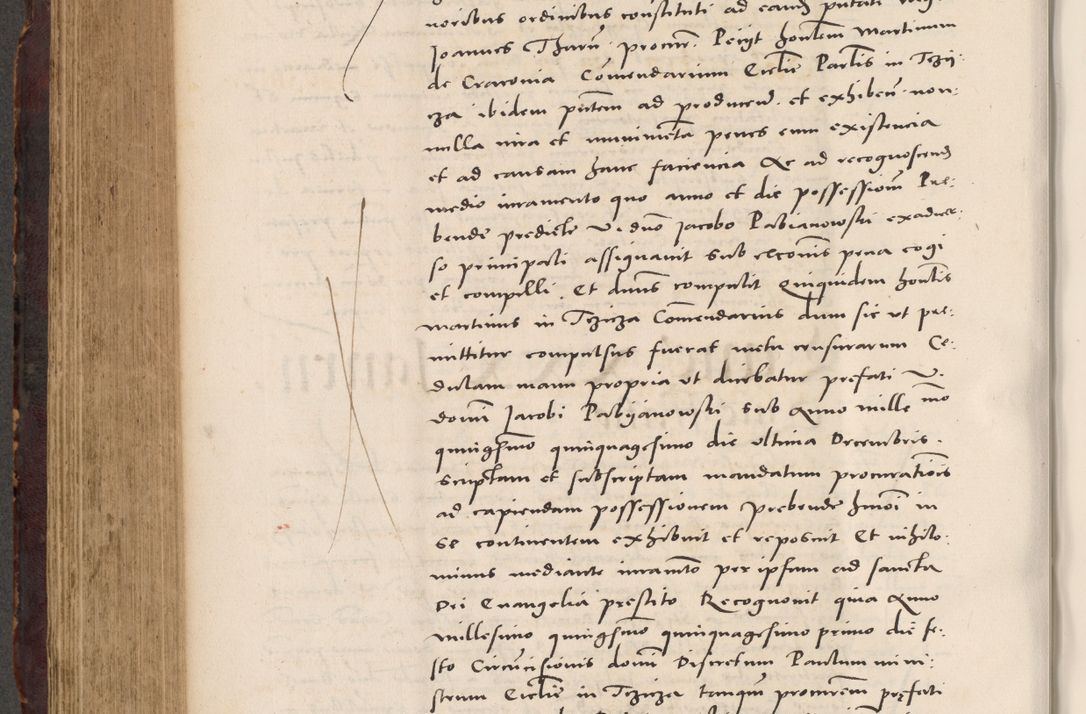 noribus ordinibus constituti ad eand putati
Joannes Tharn procur. Petijt honlem Martinum
de Cracovia Comendarium Ecclie Parlis in Tczij-
cza ibidem pntem ad producend. et exhiben. non-
nulla iura et munimeta penes eum existencia
et ad causam hanc faciencia Ac ad recognoscend
medio iuramento quo anno et die possessiom Pre-
bende predicte v. duo Jacobo Pabianowski exadver-
so principali assignavit sub exconis pena cogi
et compelli. Et duns compulit Quiquidem honlis
martinus in Tczicza Comendarius dum sic ut pre-
mittitur compulsus fuerat metu censurarum Ce-
dulam manu propria ut dicebatur prefati V.
domi Jacobi Pabijanowski sub Anno mille mo
quingsmo quinquagesimo die ultima Decembris.
scriptam et subscriptam mandatum procurationis
ad capiendam possessionem prebende hmoi in
se continentem exhibuit et reposuit Et nihilo-
minus mediante iuramto per ipsum ad sancta
Dei Evangelia prestito Recognovit quia Anno
millesimo quingsmo quinquagesimo primo die fe-
sto Circucisionis domi Discretum Paulum mini-
strum Ecclie in Tczicza tanqum procurem prefati